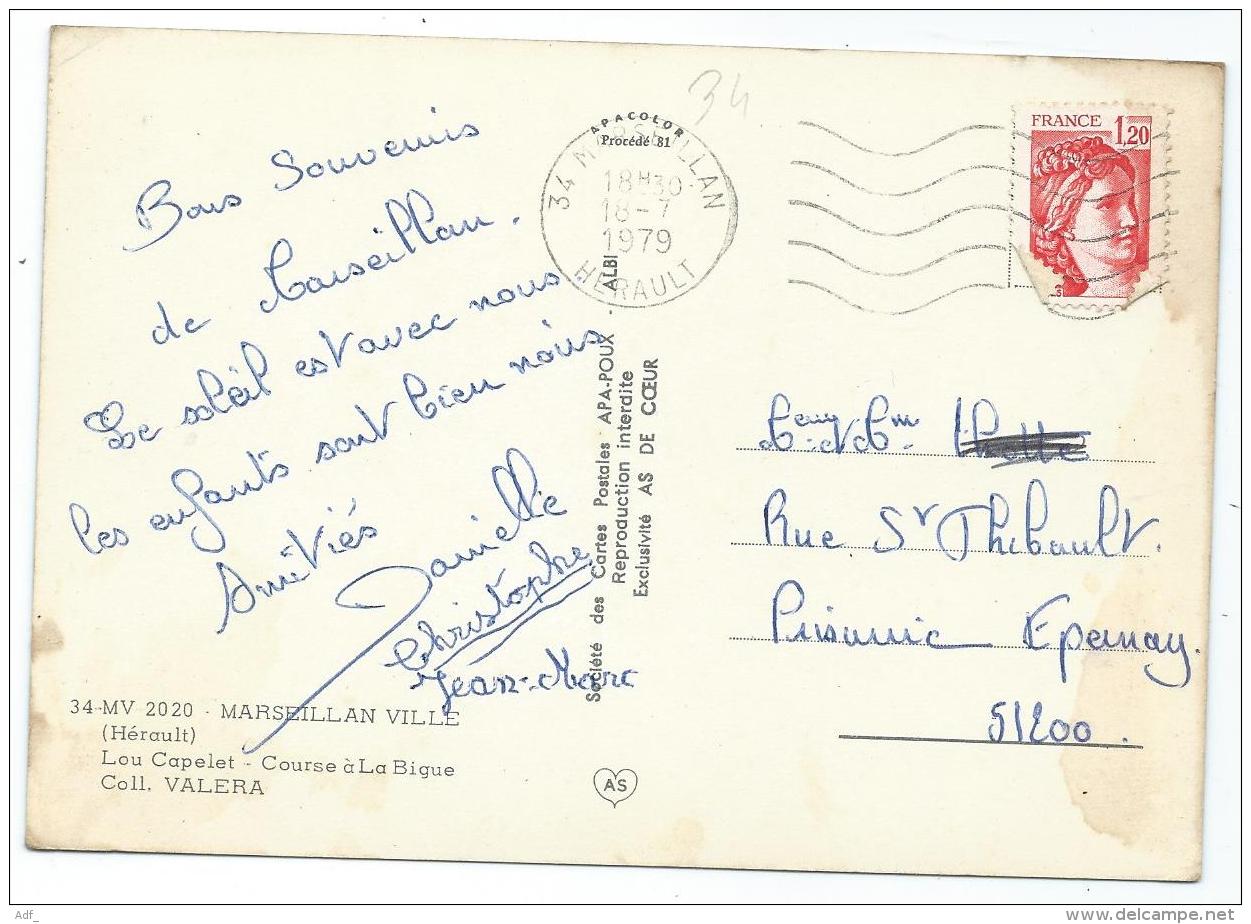 34
APACOLOR
Procédé 81
34 MARSEILLAN
18H30
18-7
1979
HERAULT
FRANCE 1,20
Bons Souvenirs
de Marseillan.
Le soleil est avec nous.
les enfants sont bien noirs
Amitiés
Danielle
Christophe
Jean-Marc
34-MV 2020 - MARSEILLAN VILLE
(Hérault)
Lou Capelet - Course à La Bigue
Coll. VALERA
Société des Cartes Postales APA-POUX - ALBI
Reproduction interdite
Exclusivité AS DE CŒUR
AS
Rue St Thibault.
Prisunic Epernay.
51200.
Adf_
www.delcampe.net